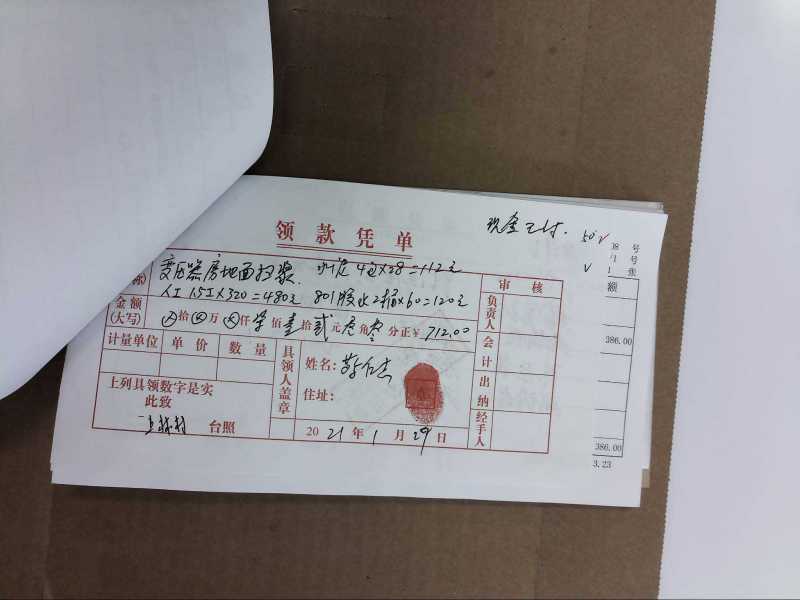 现金已付.
50
号
号
张
领款凭单
变压器房地面扫浆 水泥4包×28=112元
人工1.5工×320=480元 801胶水2桶×60=120元
额
审核
金额
(大写)
拾 万 仟 柒 佰 壹 拾 贰 元 零 角 零 分正¥ 712.00
负责人
386.00
计量单位 单价 数量
具领人盖章
姓名:
会计
住址:
出纳
上列具领数字是实
此致
台照
2021年1月29日
经手人
386.00
3.23